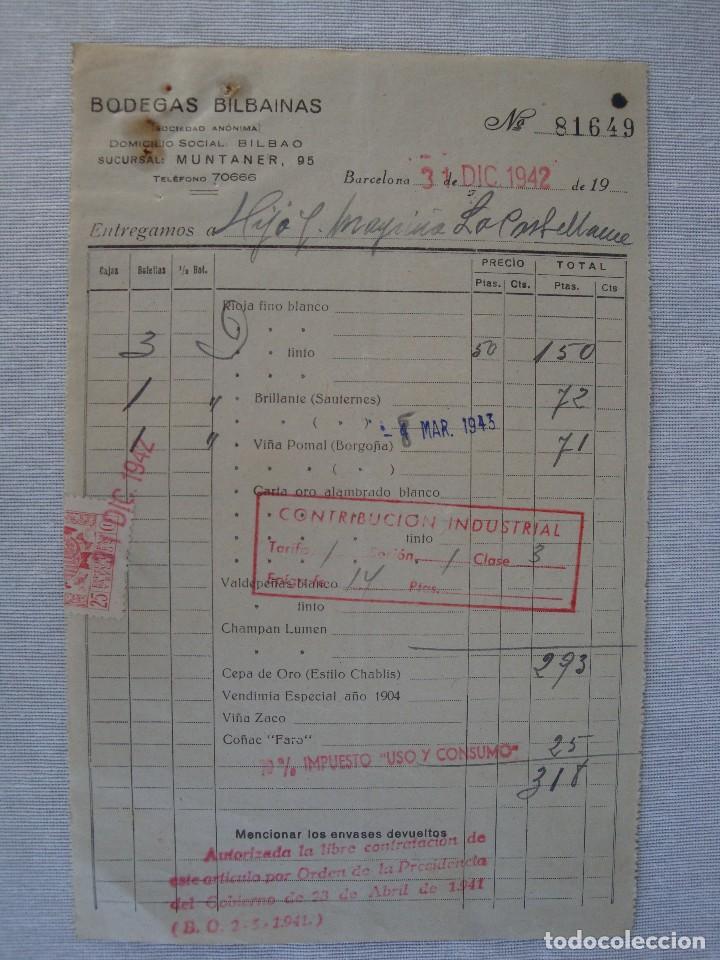 BODEGAS BILBAINAS
(SOCIEDAD ANÓNIMA)
DOMICILIO SOCIAL: BILBAO
SUCURSAL: MUNTANER, 95
TELÉFONO 70666
Nº 81649
Barcelona 31 de DIC. 1942 de 19
Entregamos a Hijo J. La Castellana
Cajas Botellas ½ Bot. PRECIO TOTAL
Ptas. Cts. Ptas. Cts
Rioja fino blanco
" "
3 " " tinto 50 150
" "
1 " " Brillante (Sauternes) 72
" ( " )
- 5 MAR. 1943
1 " " Viña Pomal (Borgoña) 71
" " ( " )
" Carta oro alambrado blanco
CONTRIBUCIÓN INDUSTRIAL
" " " tinto
Tarifa 1 Sección 1 Clase 3
Valdepeñas blanco 14 Ptas.
" tinto
Champan Lumen
" "
293
Cepa de Oro (Estilo Chablis)
Vendimia Especial año 1904
Viña Zaco
Coñac "Faro" 25
10% IMPUESTO "USO Y CONSUMO"
318
Mencionar los envases devueltos
Autorizada la libre contratación de
este artículo por Orden de la Presidencia
del Gobierno de 23 de Abril de 1.941
(B. O. 2-5-1941.)
DIC. 1942
todocoleccion